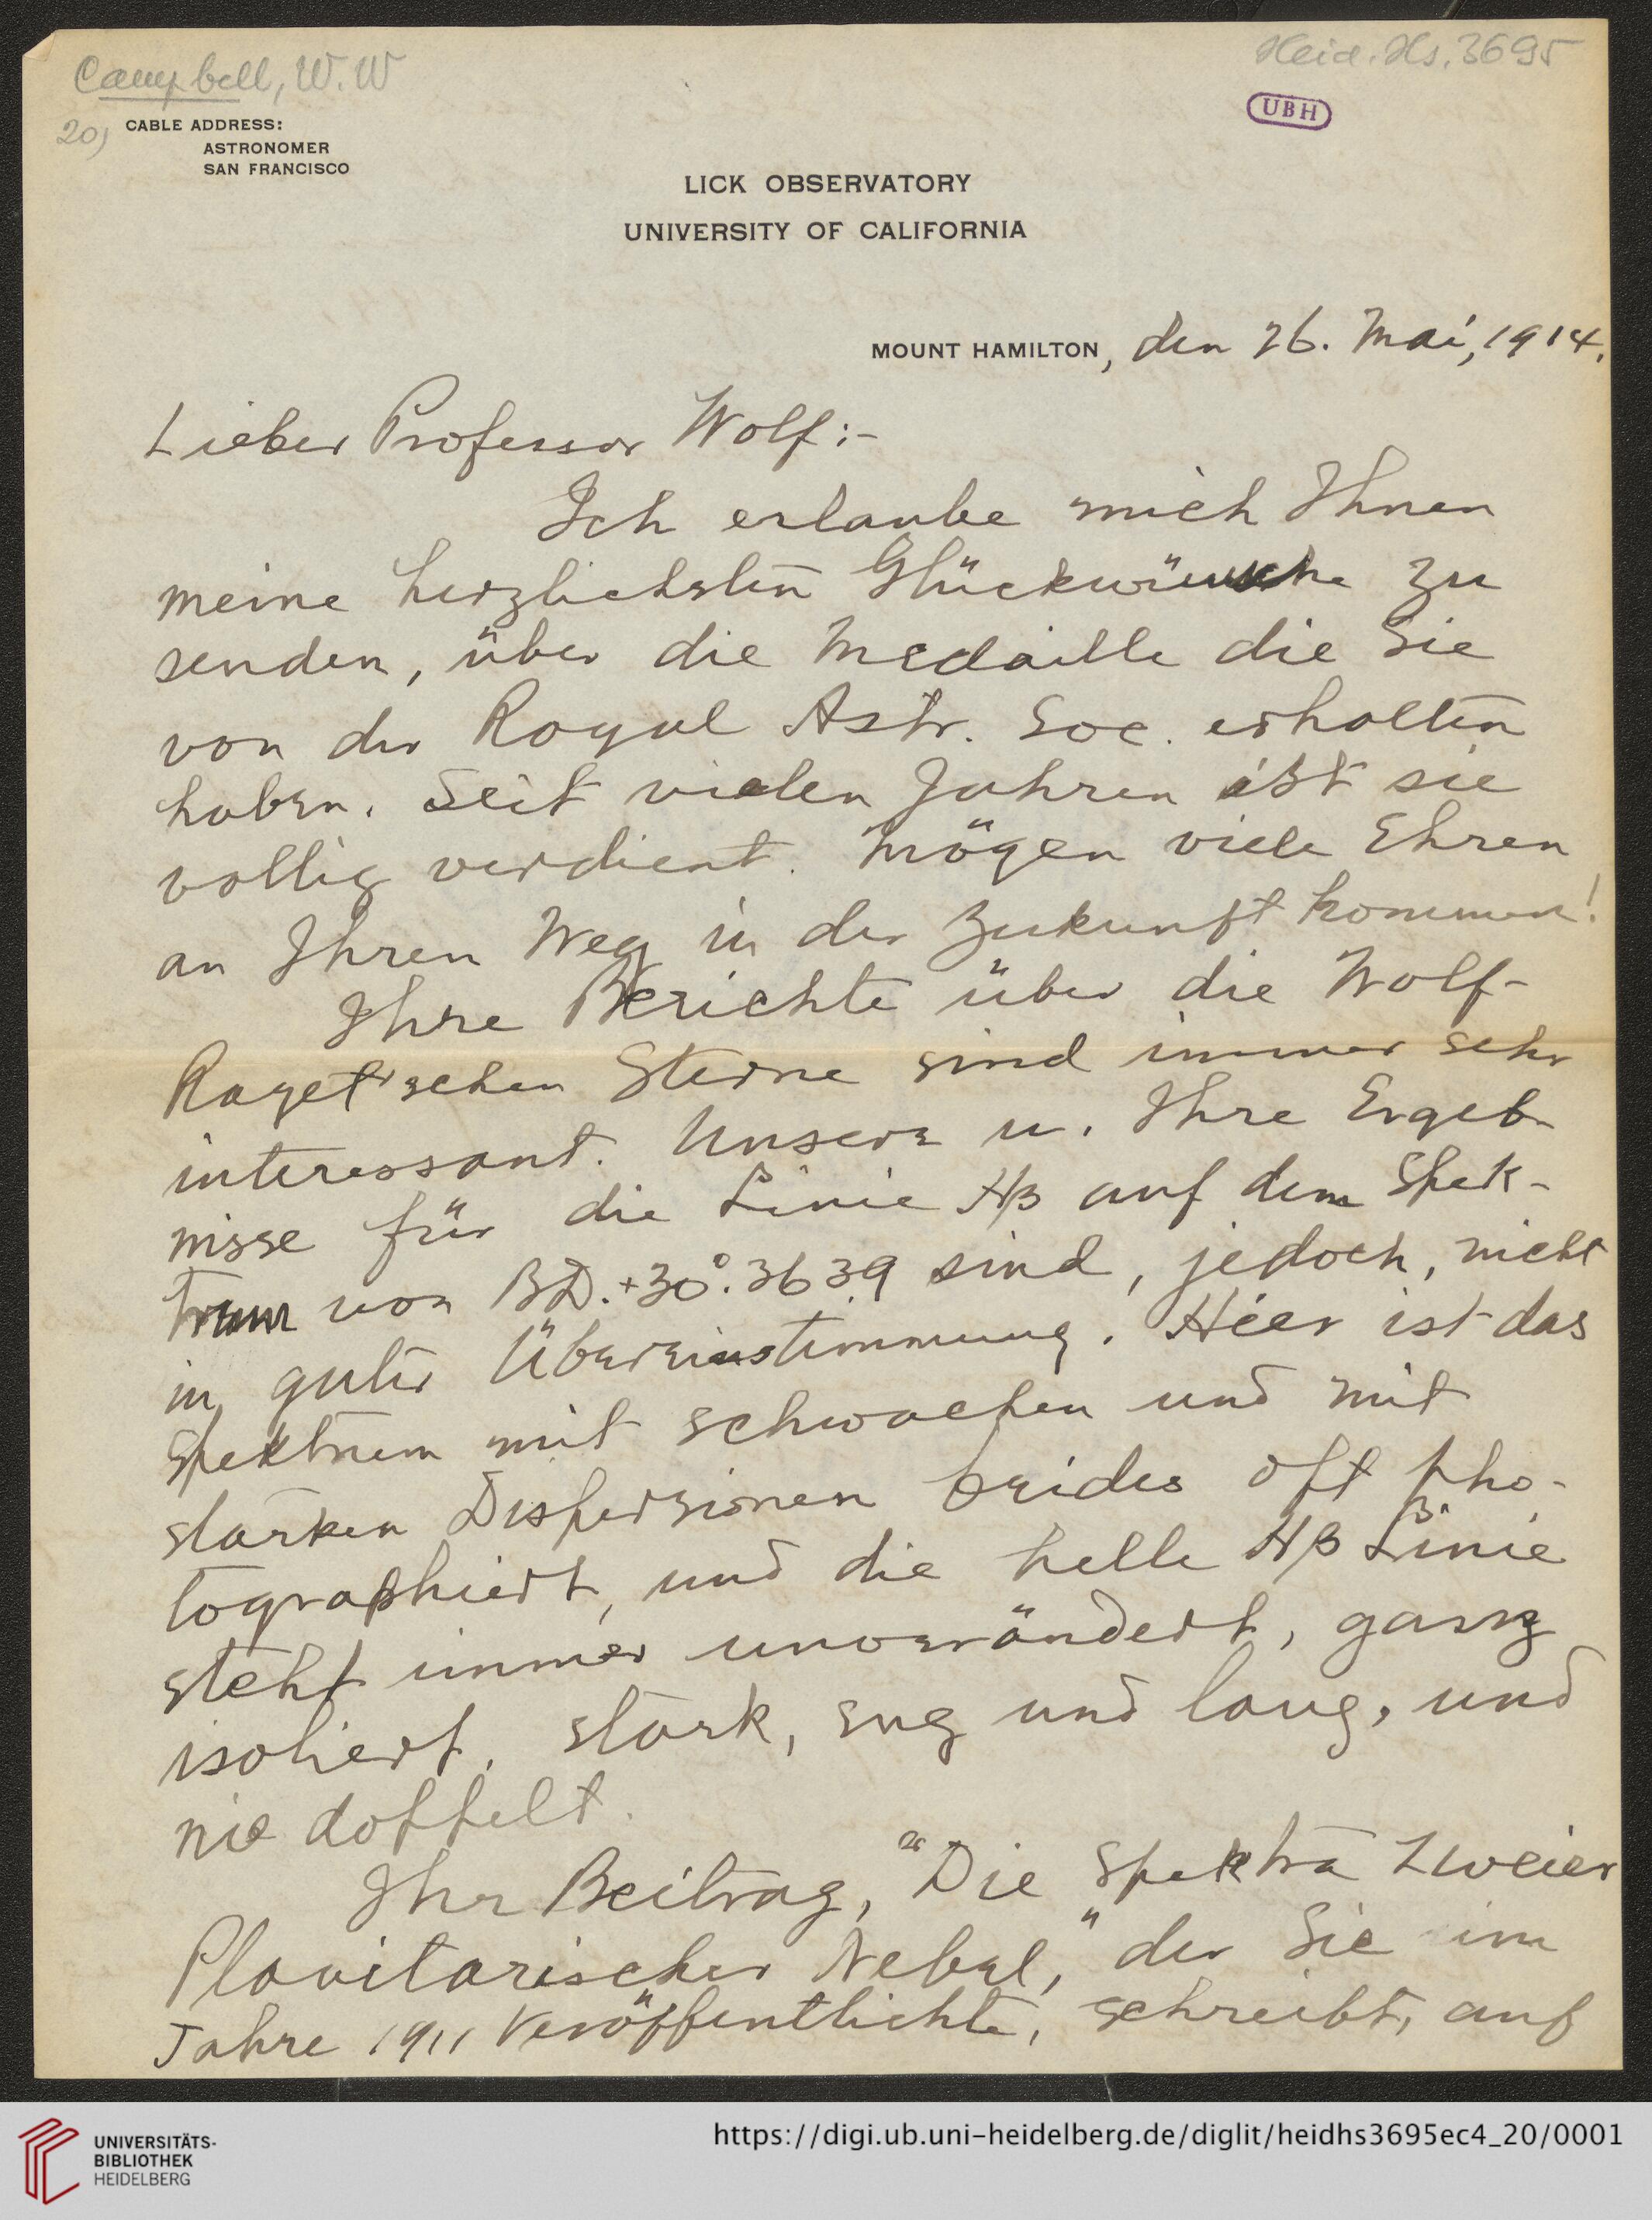 Campbell, W. W
Heid. Hs. 3695
UBH
20)
CABLE ADDRESS:
ASTRONOMER
SAN FRANCISCO
LICK OBSERVATORY
UNIVERSITY OF CALIFORNIA
MOUNT HAMILTON, den 26. Mai, 1914.
Lieber Professor Wolf:-
Ich erlaube mich Ihnen
meine herzlichsten Glückwünsche zu
senden, über die Medaille die Sie
von der Royal Astr. Soc. erhalten
haben. Seit vielen Jahren ist sie
vollig verdient. Mögen viele Ehren
an Ihren Weg in der Zukunft kommen!
Ihre Berichte über die Wolf-
Rayet'schen Sterne sind immer sehr
interessant. Unsere u. Ihre Ergeb-
nisse für die Linie Hβ auf dem Spek-
trum von BD.+30°.3639 sind, jedoch, nicht
in guter Übereinstimmung. Hier ist das
Spektrum mit schwachen und mit
starken Dispersionen beides oft pho-
tographiert, und die helle Hβ Linie
steht immer unverändert, ganz
isoliert, stark, eng und lang, und
nie doppelt.
Ihr Beitrag, "Die Spektra zweier
Planitarischer Nebel," der Sie im
Jahre 1911 Veröffentlichte, schreibt, auf
UNIVERSITÄTS-
BIBLIOTHEK
HEIDELBERG
https://digi.ub.uni-heidelberg.de/diglit/heidhs3695ec4_20/0001